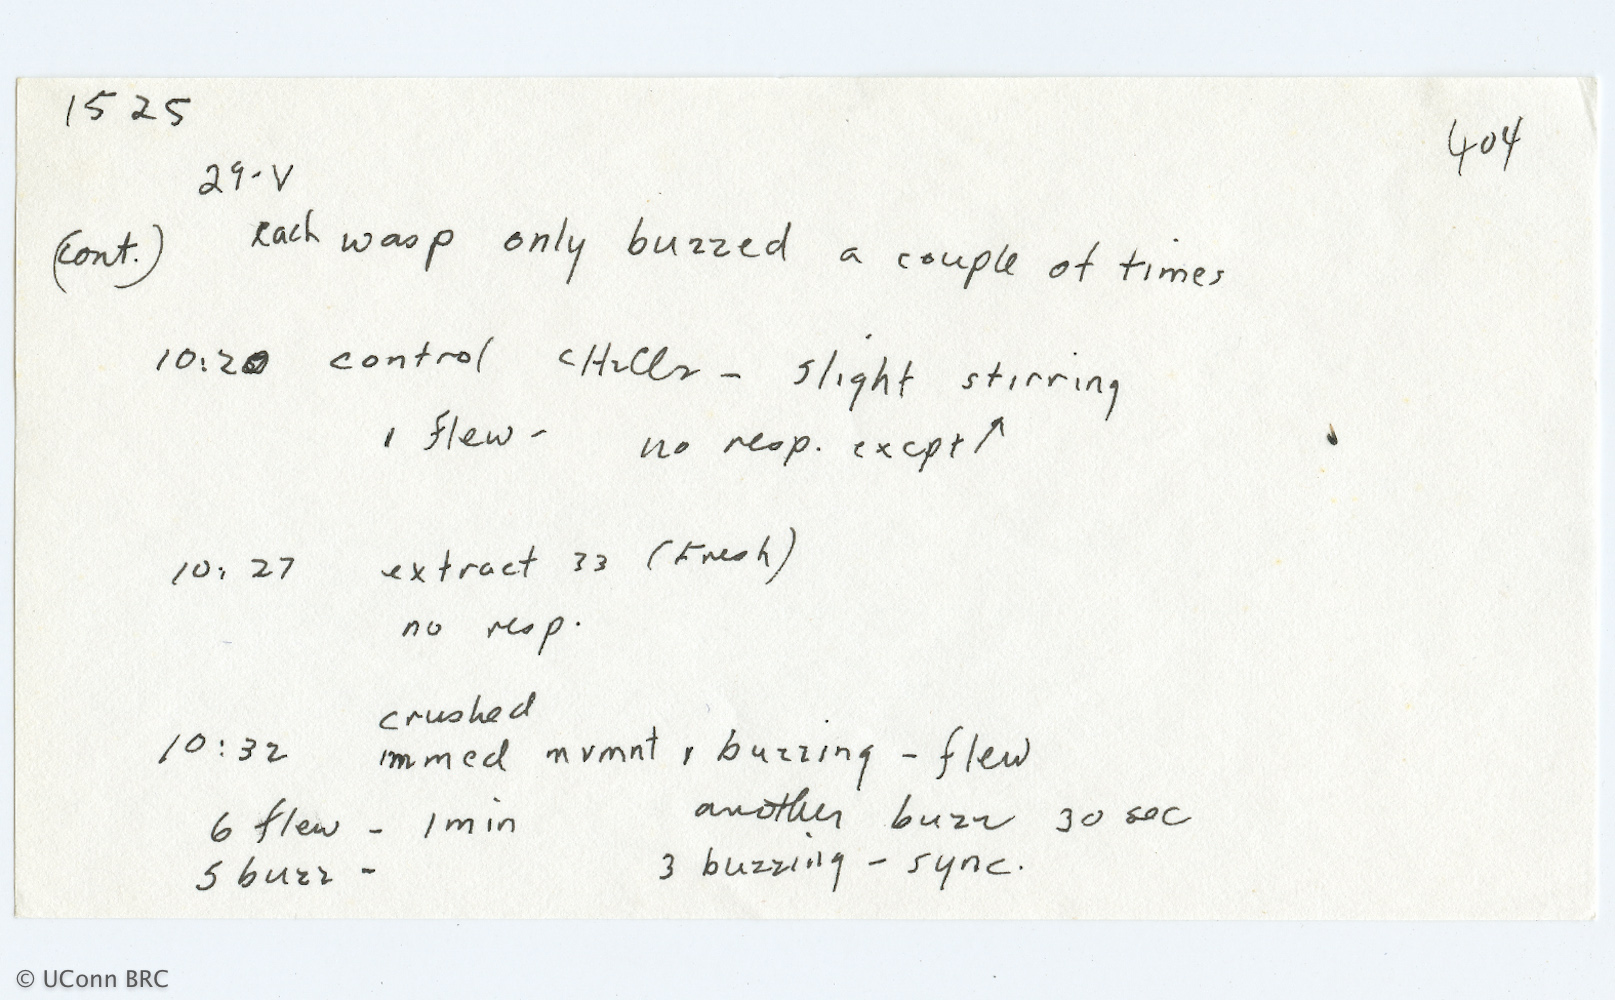 1525
404
29-V
(cont.) Each wasp only buzzed a couple of times
10:20 control CH2Cl2 - slight stirring
1 flew - no resp. excpt ↑
10:27 extract 33 (Fresh)
no resp.
crushed
10:32 immed mvmnt, buzzing - flew
6 flew - 1 min another buzz 30 sec
5 buzz - 3 buzzing - sync.
© UConn BRC